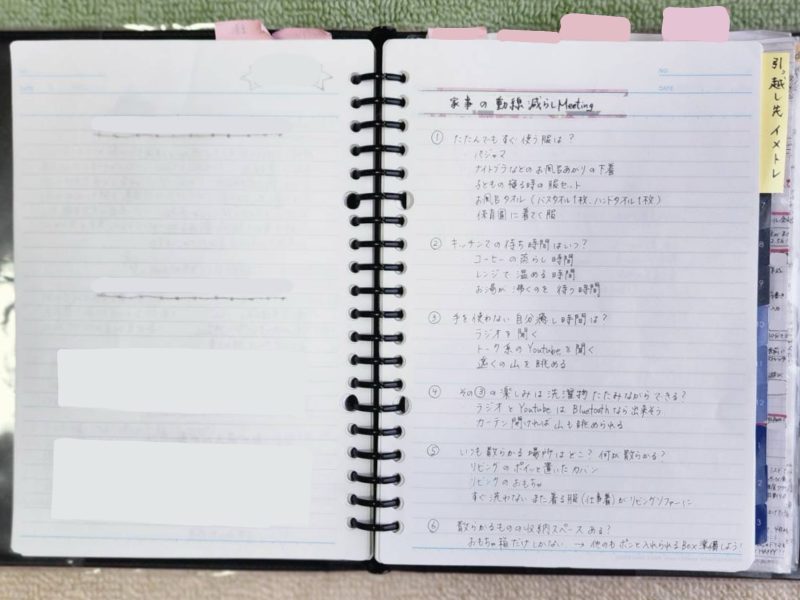 家事の動線減らしMeeting
① たたんでもすぐ使う服は？
パジャマ
ナイトブラなどのお風呂あがりの下着
子どもの寝る時の服セット
お風呂タオル（バスタオル1枚、ハンドタオル1枚）
保育園に着てく服
② キッチンでの待ち時間はいつ？
コーヒーの蒸らし時間
レンジで温める時間
お湯が沸くのを待つ時間
③ 手を使わない自分癒し時間は？
ラジオを聞く
トーク系のYoutubeを聞く
遠くの山を眺める
④ その③の楽しみは洗濯物たたみながらできる？
ラジオとYoutubeはBluetoothなら出来そう
カーテン開ければ山も眺められる
⑤ いつも散らかる場所はどこ？何が散らかる？
リビングのポイッと置いたカバン
リビングのおもちゃ
すぐ洗わないまた着る服（仕事着）がリビングソファーに
⑥ 散らかるものの収納スペースある？
おもちゃ箱だけしかない → 他のもポンと入れられるBox準備しよう！
引っ越し先イメトレ
NO.
DATE
7
8
9
10
11
12
1
2
3